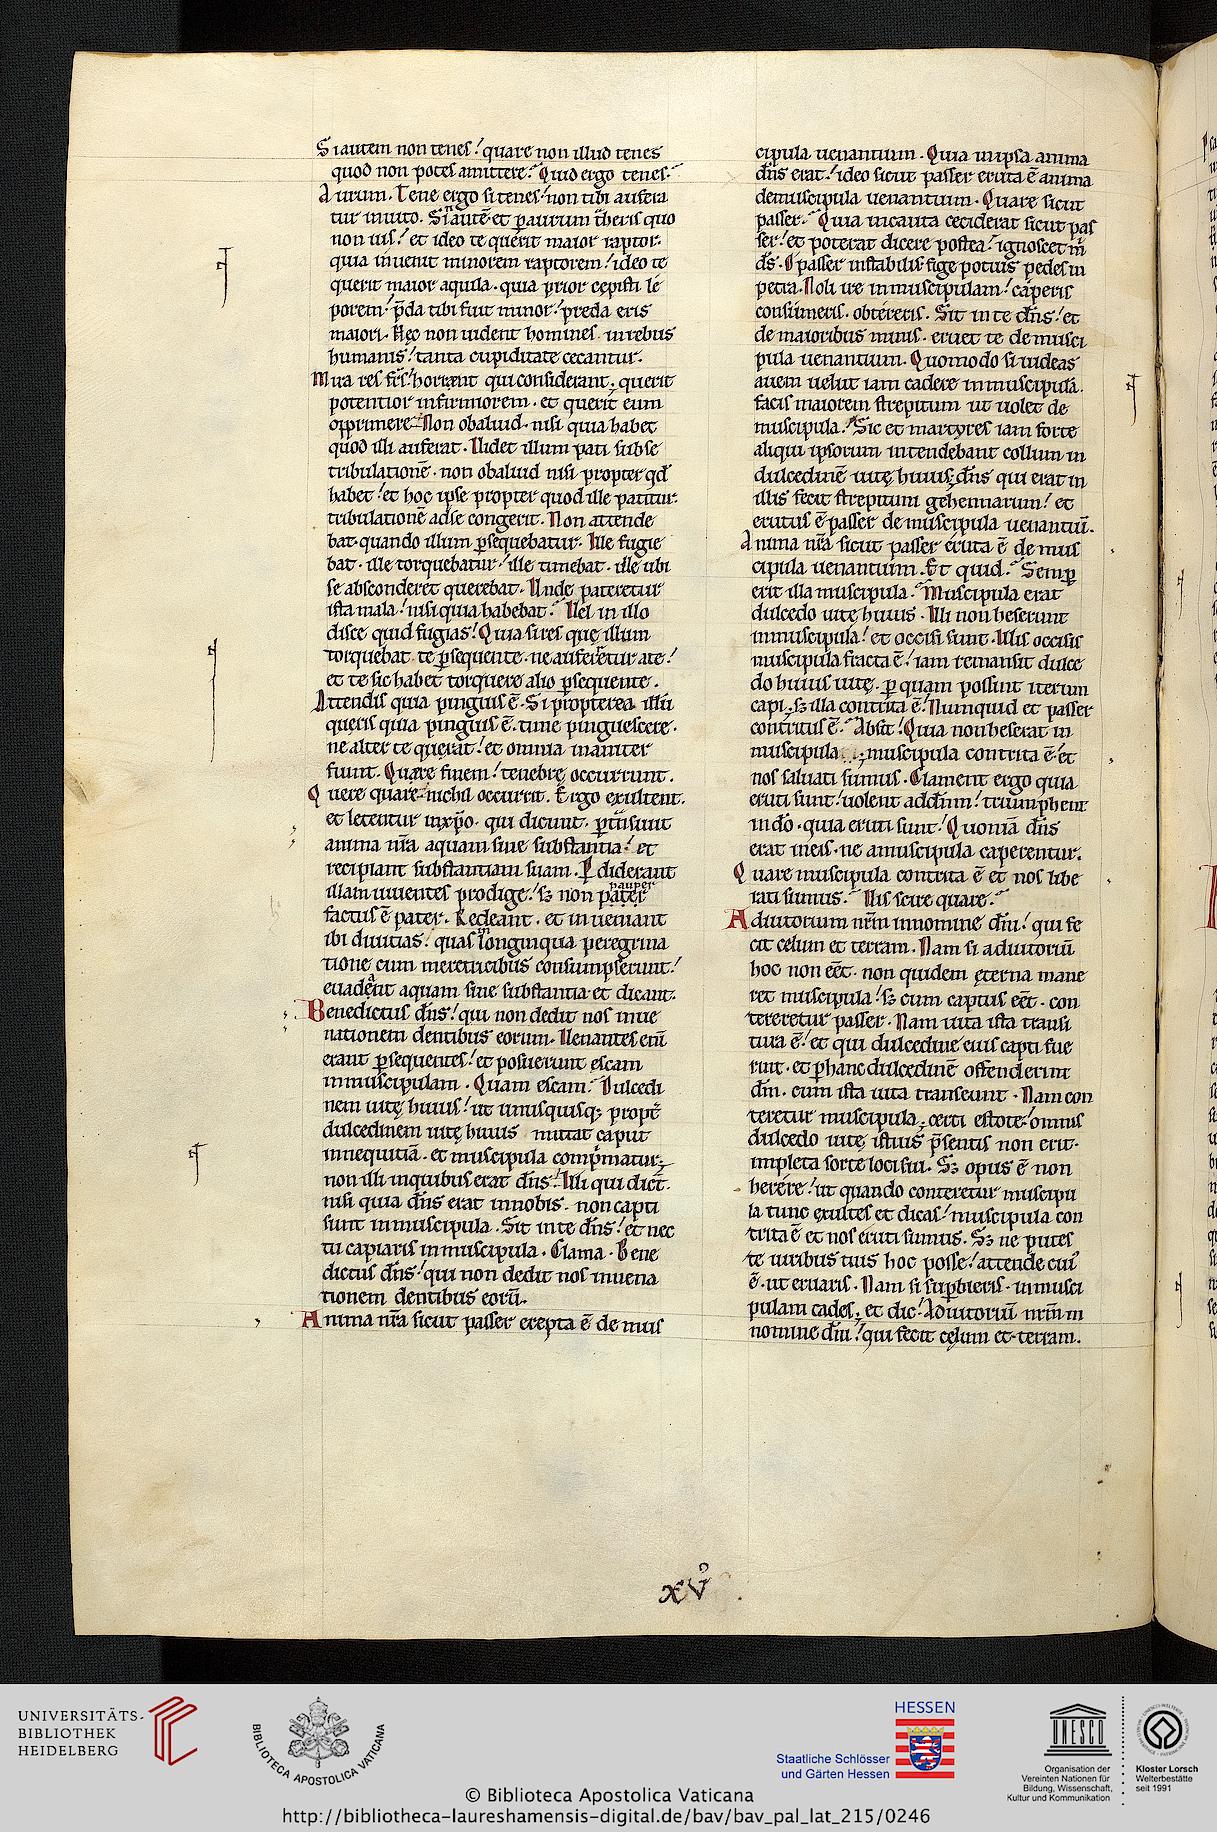 Si autem non tenes! quare non illud tenes
quod non potes amittere? Quid ergo tenes?
Aurum. Tene ergo si tenes! non tibi aufera
tur inuito. Si autē et p aurum theris quo
non uis! et ideo te querit maior raptor.
quia inuenit minorem raptorem! ideo te
querit maior aquila. quia prior cepisti le
porem! p̄da tibi fuit minor! preda eris
maiori. Hec non uident homines in rebus
humanis! tanta cupiditate cecantur.
Mira res frs! horreant qui considerant. querit
potentior infirmiorem. et querit eum
opprimere. Non ob aliud. nisi quia habet
quod illi auferat. Uidet illum pati sub se
tribulationē. non ob aliud nisi propter qd
habet! et hoc ipse propter quod ille patitur.
tribulationē ad se congerit. Non attende
bat. quando illum psequebatur. Ille fugie
bat. ille torquebatur! ille timebat. ille ubi
se absconderet querebat. Unde pateretur
ista mala! nisi quia habebat? Uel in illo
disce quid fugias! Quia si res que illum
torquebat te psequente. ne auferetur a te!
et te sic habet torquere alio psequente.
Attendis quia pinguis ē. Si propterea illū
queris quia pinguis ē. time pinguescere.
ne alter te querat! et omnia inaniter
fiunt. Quare finem! tenebre occurrunt.
Quere quare nichil occurrit. Ergo exultent.
et letentur in xpo. qui dicunt. ptͣsiuit
anima nr̄a aquam sine substantia! et
recipiant substantiam suam. Pdiderant
illam uiuentes prodige! sꝫ non pauper pater
factus ē pater. Redeant. et inueniant
ibi diuitias! quas in longinqua peregrina
tione cum meretricibus consumpserunt!
euadant aquam sine substantia et dicant.
Benedictus dn̄s! qui non dedit nos in ue
nationem dentibus eorum. Uenantes eni
erant psequentes! et posuerunt escam
in muscipulam. Quam escam? Dulcedi
nem uite huius! ut unusquisqꝫ propt
dulcedinem uite huius mittat caput
in nequitiā. et muscipula compmatur.
non illi in quibus erat dn̄s. Illi qui dict.
nisi quia dn̄s erat in nobis. non capti
sunt in muscipula. Sit in te dn̄s! et nec
tu capiaris in muscipula. Clama. Bene
dictus dn̄s! qui non dedit nos in uena
tionem dentibus eorū.
Anima nr̄a sicut passer erepta ē de mus
cipula uenantium. Quia in ipsa anima
dn̄s erat! ideo sicut passer eruta ē anima
de muscipula uenantium. Quare sicut
passer? Quia incauta ceciderat sicut pas
ser! et poterat dicere postea! ignoscet m̄
ds̄. O passer instabilis! fige potius pedes in
petra. Noli ire in muscipulam! caperis
consumeris. obtereris. Sit in te dn̄s! et
de maioribus minis. eruet te de musci
pula uenantium. Quomodo si uideas
auem uelut iam cadere in muscipulā.
facis maiorem strepitum ut uolet de
muscipula. Sic et martyres iam forte
aliqui ipsorum intendebant collum in
dulcedinē uite huius. dn̄s qui erat in
illis fecit strepitum gehennarum! et
erutus ē passer de muscipula uenantiū.
Anima nr̄a sicut passer eruta ē de mus
cipula uenantium. Et quid? Semp
erit illa muscipula? Muscipula erat
dulcedo uite huius. Illi non heserunt
in muscipula! et occisi sunt. Illis occisis
muscipula fracta ē! iam remansit dulce
do huius uite. p quam possint iterum
capi. sꝫ illa contrita ē! Numquid et passer
contritus ē? Absit! Quia non heserat in
muscipula. muscipula contrita ē et
nos saluati sumus. Clament ergo quia
eruti sunt! uolent ad dn̄m! triumphent
in dō. quia eruti sunt! Quoniā dn̄s
erat in eis. ne a muscipula caperentur.
Quare muscipula contrita ē et nos libe
rati sumus? Uis scire quare?
Adiutorium nr̄m in nomine dn̄i! qui fe
cit celum et terram. Nam si adiutoriū
hoc non eēt. non quidem eterna mane
ret muscipula! sꝫ cum captus eēt. con
tereretur passer. Nam uita ista transi
tiua ē! et qui dulcedine eius capti fue
rint. et p hanc dulcedinē offenderint
dm̄. cum ista uita transeunt. Nam con
teretur muscipula. certi estote! omnis
dulcedo uite istius p̄sentis non erit.
impleta sorte loci sui. Sꝫ opus ē non
herere! ut quando conteretur muscipu
la tunc exultes et dicas! muscipula con
trita ē et nos eruti sumus. Sꝫ ne putes
te uiribus tuis hoc posse! attende cui'
ē. ut eruaris. Nam si supbieris. in musci
pulam cades. et dic! Adiutoriū nr̄m in
nomine dn̄i! qui fecit celum et terram.
xv
UNIVERSITÄTS-
BIBLIOTHEK
HEIDELBERG
BIBLIOTECA APOSTOLICA VATICANA
HESSEN
Staatliche Schlösser
und Gärten Hessen
UNESCO
Organisation der
Vereinten Nationen für
Bildung, Wissenschaft,
Kultur und Kommunikation
Kloster Lorsch
Welterbestätte
seit 1991
© Biblioteca Apostolica Vaticana
http://bibliotheca-laureshamensis-digital.de/bav/bav_pal_lat_215/0246